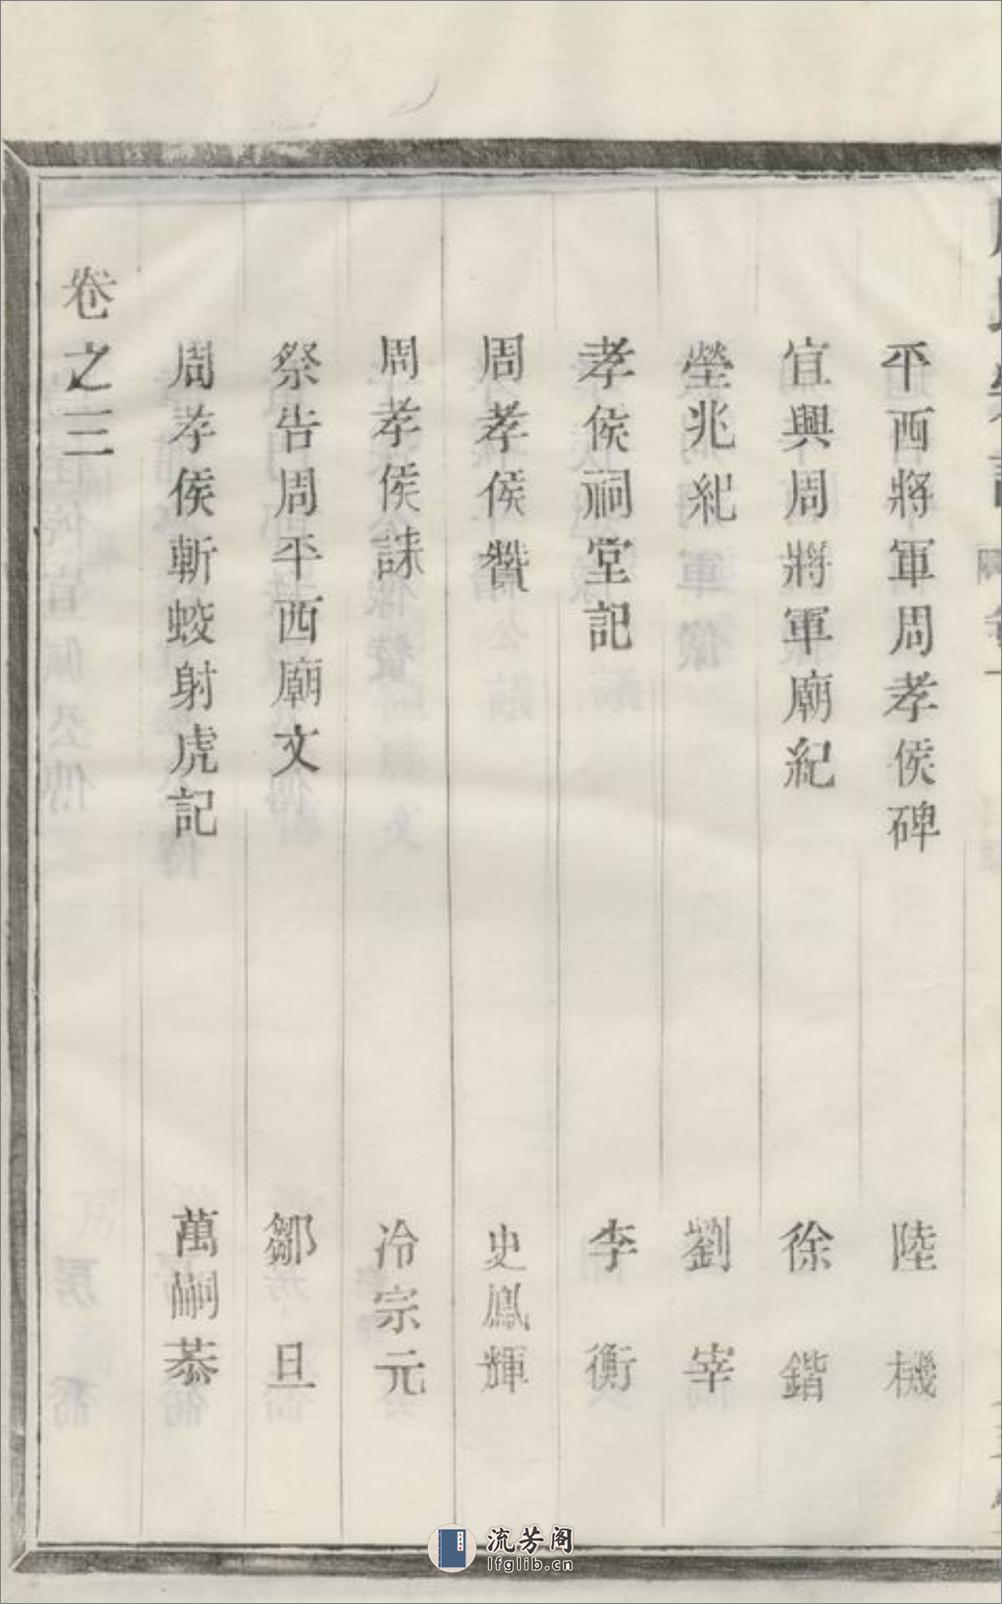 平西將軍周孝侯碑 陸機
宜興周將軍廟紀 徐鍇
塋兆紀 劉宰
孝侯祠堂記 李衡
周孝侯贊 史鳳輝
周孝侯誄 冷宗元
祭告周平西廟文 鄒旦
周孝侯斬蛟射虎記 萬嗣恭
卷之三
流芳阁
lfglib.cn